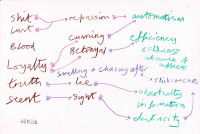 shit repression automatism
lust
Blood cunning efficiency
Betrayal coldness
Loyalty absence of affect
smelling + chasing after
truth lie slick
scent sight objectivity
in function